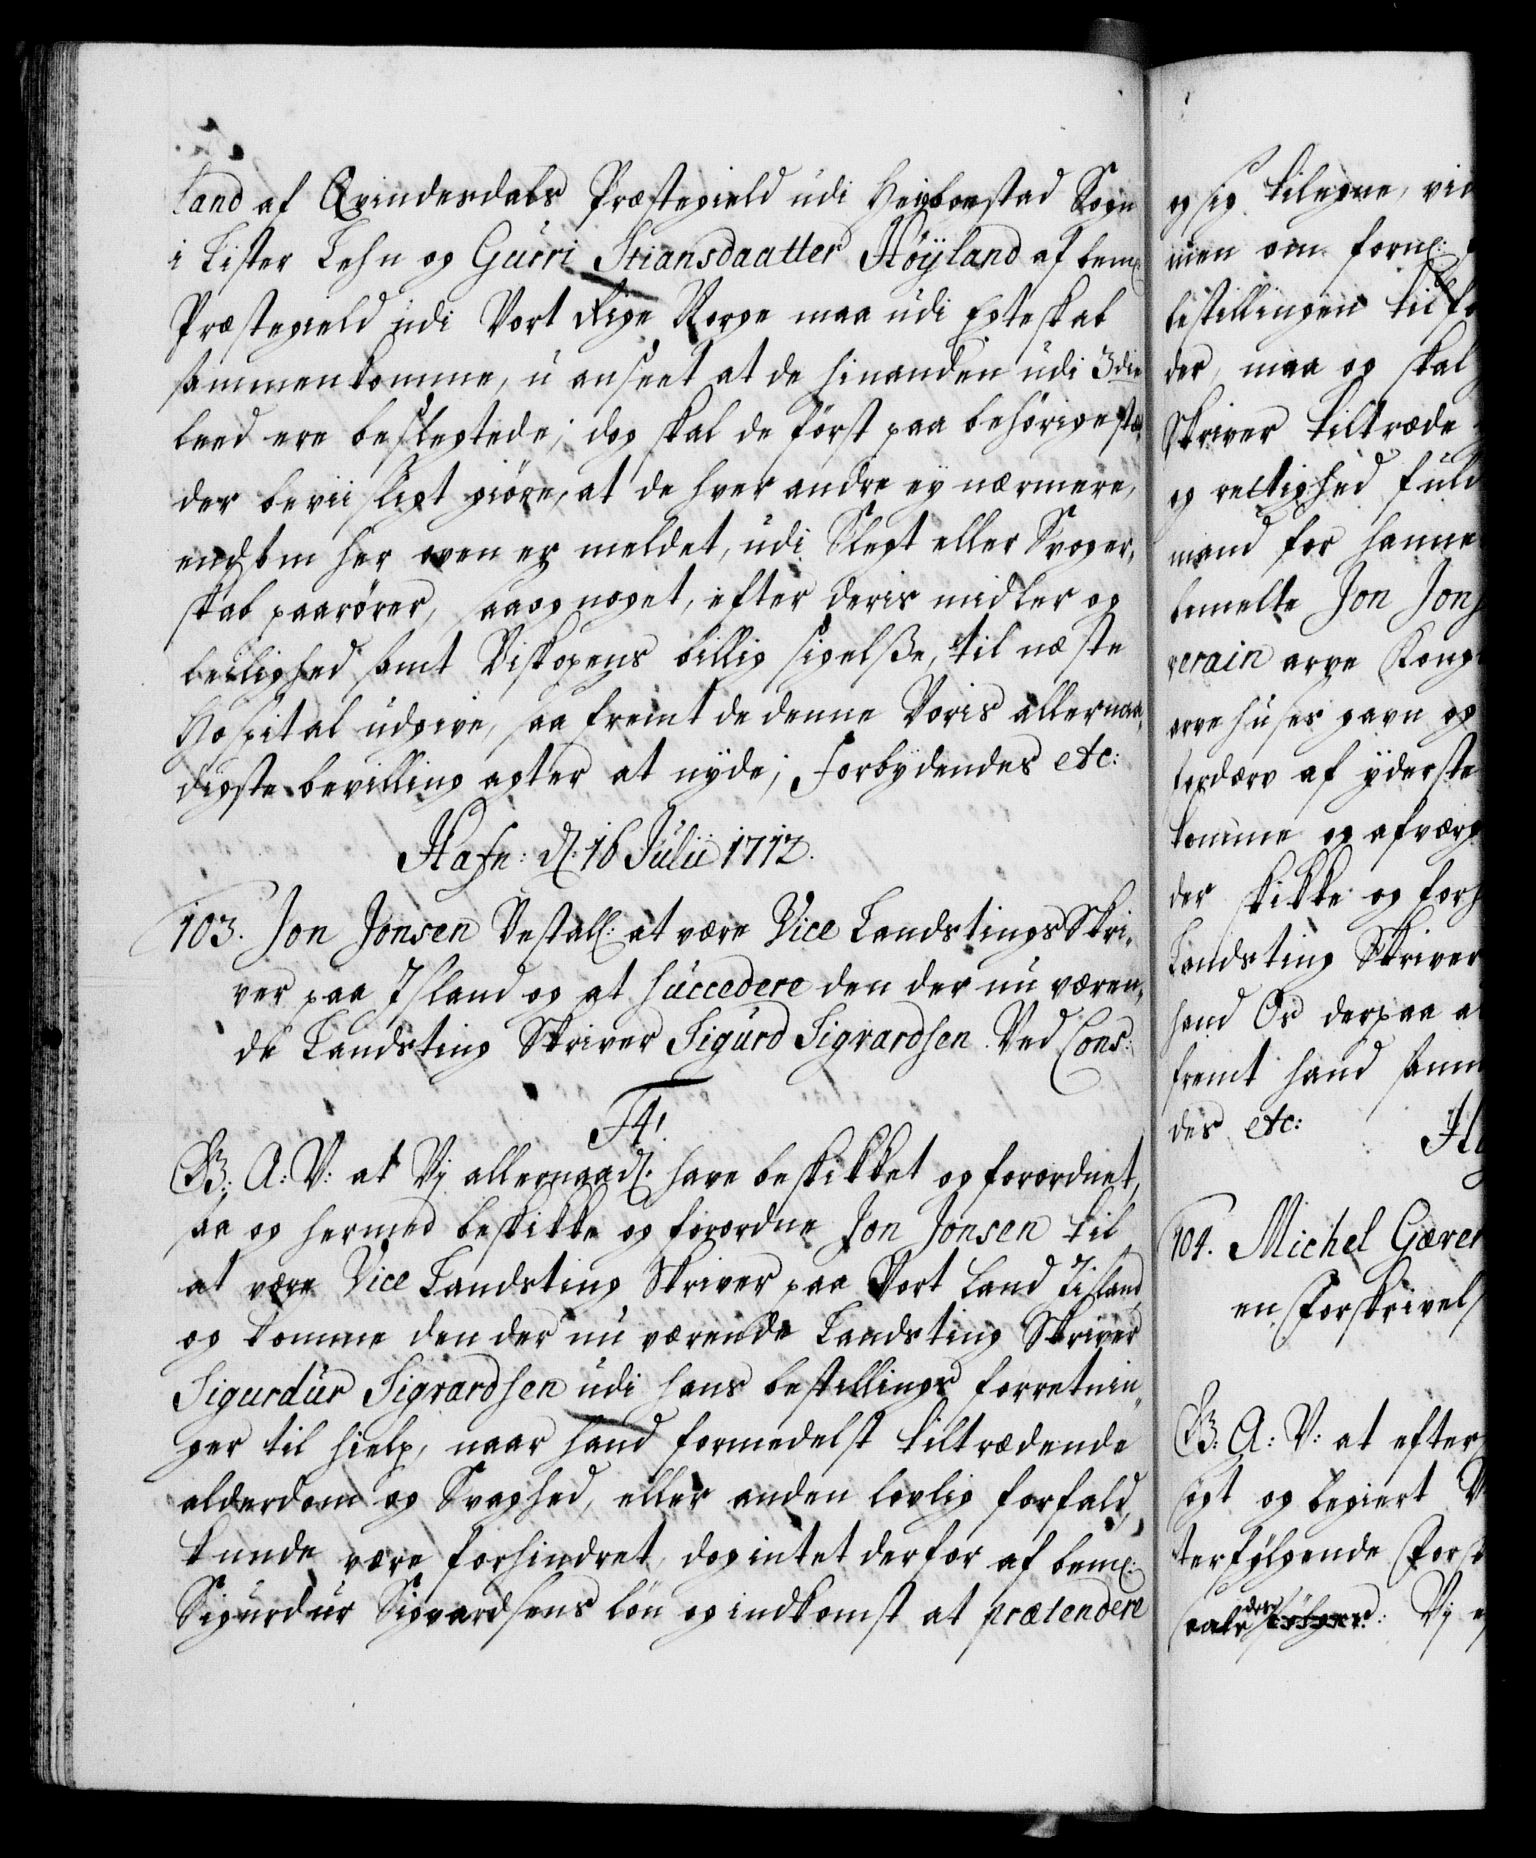 land af Qvindesdals Præstegield udi Heyboestad Sogn
i Lister Lehn og Gurri Stiansdaatter Höyland af bem:
Præstegield udi Vort Rige Norge maa udi Egteskab
sammenkomme, u anseet at de hinanden udi 3die
leed ere beslegtede; dog skal de först paa behörige stæ,
der beviisligt giöre, at de hver andre ey nærmere,
end som her oven er meldet, udi Slegt eller Svoger,
skab paarører, saa og noget, efter deris midler og
leilighed samt Biskopens billig sigelße, til næste
Hospital udgive, saa fremt de denne Voris allernaa,
digste bevilling agter at nyde; Forbydendes etc:
Hafn: d. 16 Julii 1712.
103. Jon Jonsen Bestall: at være Vice LandstingsSkri,
ver paa Island og at succedere den der nu væren,
de Landsting Skriver Sigurd Sigvardsen. Ved Cons:
F4.
G: A: V: at Vj allernaad: have beskikket og forordnet,
saa og hermed beskikke og forordne Jon Jonsen til
at være Vice Landsting Skriver paa Vort Land Iisland
og komme den der nu værende Landsting Skriver
Sigurdur Sigvardsen udi hans bestillings forretnin,
ger til hielp, naar hand formedelst tiltrædende
alderdom og Svaghed, eller anden lovlig forfald,
kunde være forhindret, dog intet derfor af bem:
Sigurdur Sigvardsens lön og indkomst at prætendere
og sig tilegne, vid
men om forn:
bestillingen tilfo
der, maa og skal
Skriver tiltræde
og rettighed fuld
mand for hanne
bemelte Jon Jons
verain arve Kong
arve huses gavn og
fordærv af yderste
komme og afværg
der skikke og forh
Landsting Skriver
hand Os derpaa a
fremt hand samm
des etc:
104. Michel Gæver
en Forskrivels
G: A: V: at efter
søgt og begiert V
terfølgende Forsk
Vj